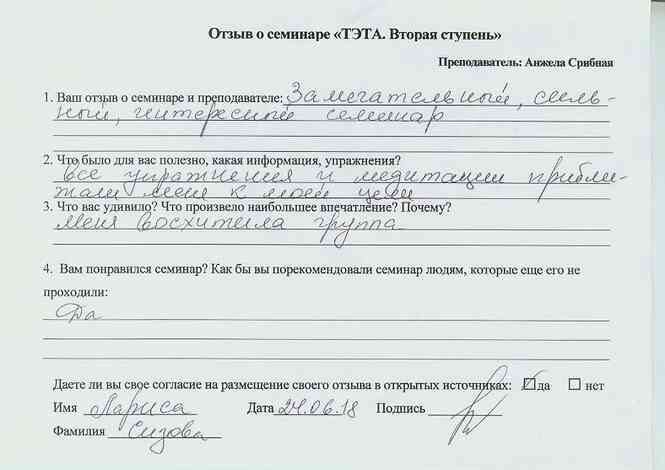 Отзыв о семинаре «ТЭТА. Вторая ступень»
Преподаватель: Анжела Срибная
1. Ваш отзыв о семинаре и преподавателе: Замечательный, силь-
ный, интересный семинар
2. Что было для вас полезно, какая информация, упражнения?
Все упражнения и медитации прибли-
жали меня к моей цели
3. Что вас удивило? Что произвело наибольшее впечатление? Почему?
Меня восхитила группа
4. Вам понравился семинар? Как бы вы порекомендовали семинар людям, которые еще его не
проходили:
Да
Даете ли вы свое согласие на размещение своего отзыва в открытых источниках: да нет
Имя Лариса Дата 24.06.18 Подпись
Фамилия Сизова